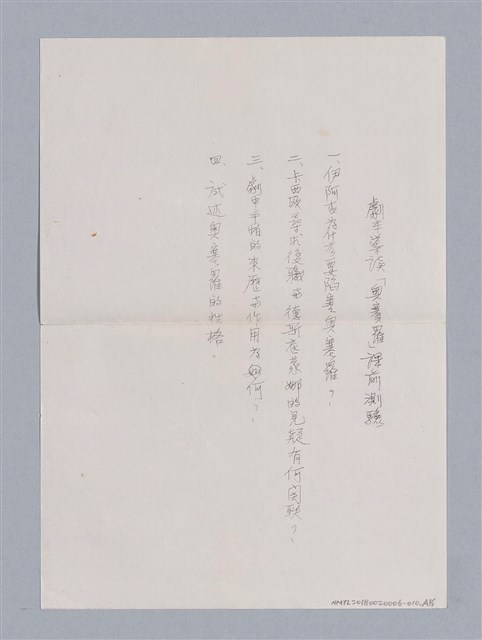 劇本導讀「奧塞羅」課前測驗
一、伊阿古為什么要陷害奧塞羅？
二、卡西歐尋求復職与德斯底蒙娜的見疑有何関联？
三、劇中手帕的來歷与作用為如何？
四、試述奧塞羅的性格。
NMTL20180020006-010.A15